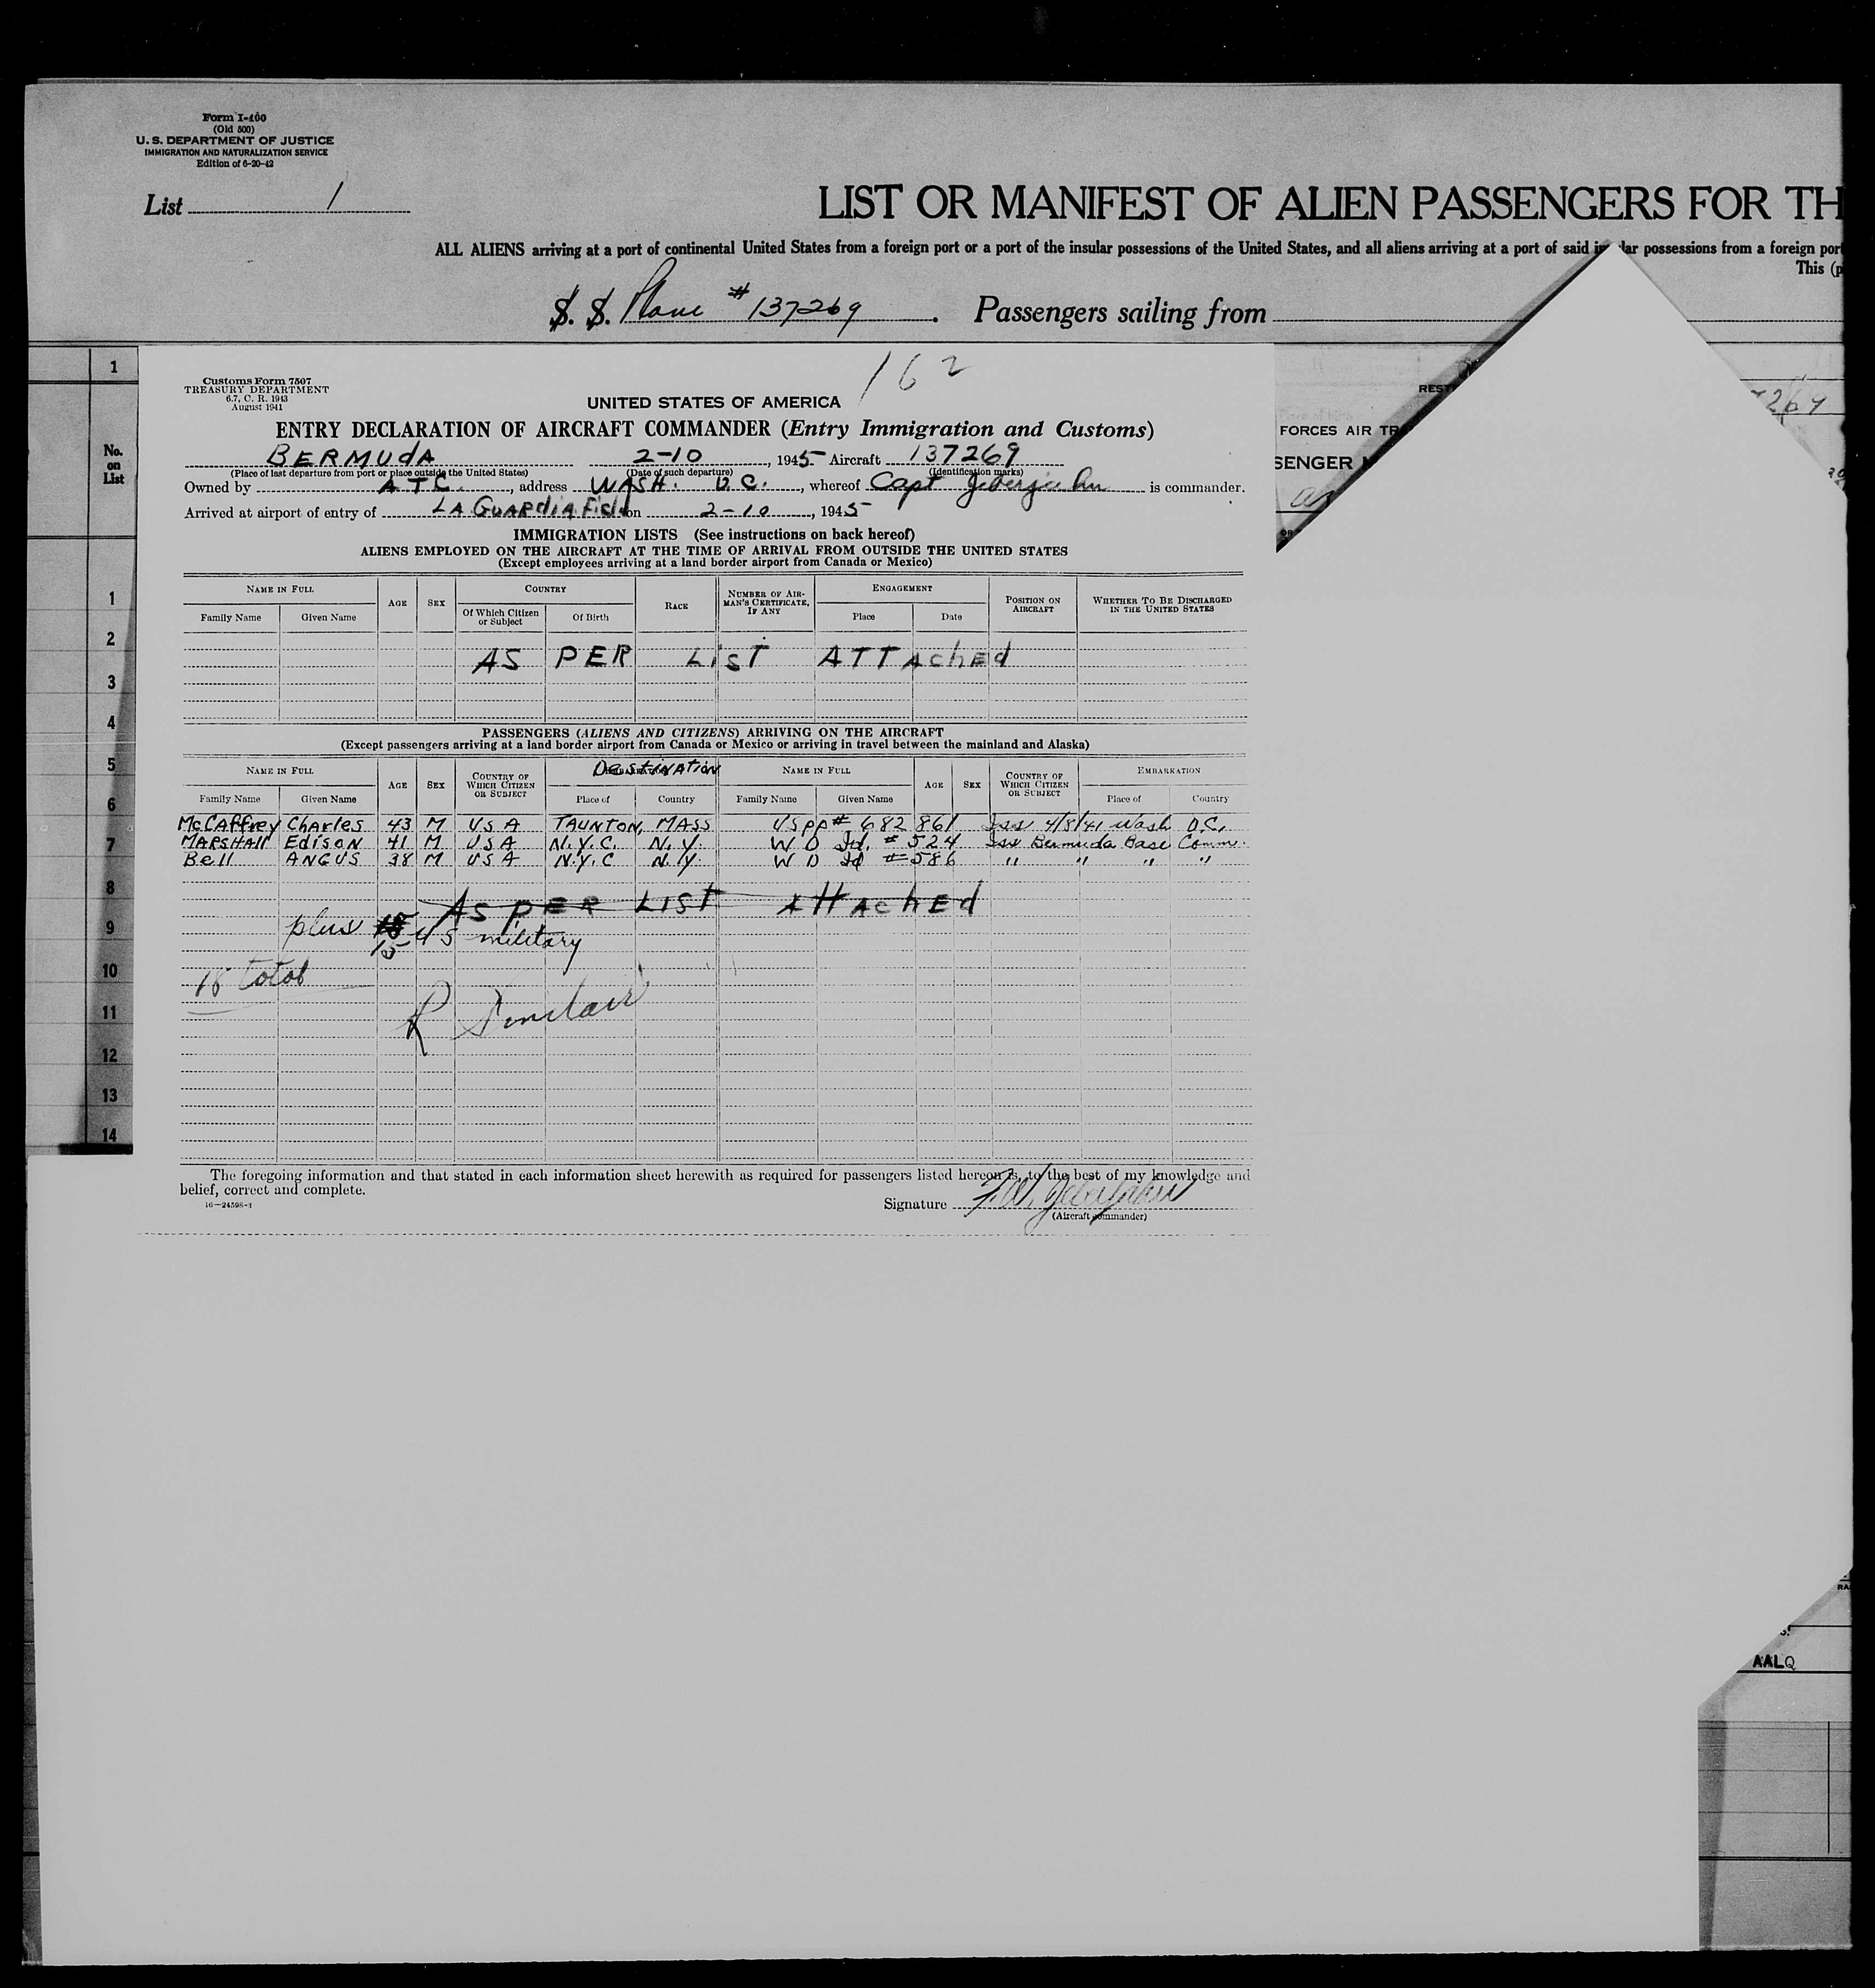 Form I-400
(Old 500)
U. S. DEPARTMENT OF JUSTICE
IMMIGRATION AND NATURALIZATION SERVICE
Edition of 6-20-42
List 1
LIST OR MANIFEST OF ALIEN PASSENGERS FOR TH
ALL ALIENS arriving at a port of continental United States from a foreign port or a port of the insular possessions of the United States, and all aliens arriving at a port of said insular possessions from a foreign port
This (p
S. S. Plane # 137269. Passengers sailing from
162
Customs Form 7507
TREASURY DEPARTMENT
6.7, C. R. 1943
August 1941
UNITED STATES OF AMERICA
ENTRY DECLARATION OF AIRCRAFT COMMANDER (Entry Immigration and Customs)
BERMUDA 2-10, 1945 Aircraft 137269
(Place of last departure from port or place outside the United States) (Date of such departure) (Identification marks)
Owned by A T C, address WASH. D. C., whereof Capt is commander.
Arrived at airport of entry of LA GUARDIA Field on 2-10, 1945
IMMIGRATION LISTS (See instructions on back hereof)
ALIENS EMPLOYED ON THE AIRCRAFT AT THE TIME OF ARRIVAL FROM OUTSIDE THE UNITED STATES
(Except employees arriving at a land border airport from Canada or Mexico)
NAME IN FULL AGE SEX COUNTRY RACE NUMBER OF AIRMAN'S CERTIFICATE, IF ANY ENGAGEMENT POSITION ON AIRCRAFT WHETHER TO BE DISCHARGED IN THE UNITED STATES
Family Name Given Name Of Which Citizen or Subject Of Birth Place Date
AS PER LIST ATTAchEd
PASSENGERS (ALIENS AND CITIZENS) ARRIVING ON THE AIRCRAFT
(Except passengers arriving at a land border airport from Canada or Mexico or arriving in travel between the mainland and Alaska)
NAME IN FULL AGE SEX COUNTRY OF WHICH CITIZEN OR SUBJECT DestinAtion NAME IN FULL AGE SEX COUNTRY OF WHICH CITIZEN OR SUBJECT EMBARKATION
Family Name Given Name Place of Country Family Name Given Name Place of Country
McCAffrey Charles 43 M USA TAUNTON, MASS US pp# 682 861 Iss 4/8/41 Wash D.C.
MARSHAll Edison 41 M USA N.Y.C. N.Y. W D Id. # 524 Iss Bermuda Base Comm.
Bell ANGUS 38 M USA N.Y.C N.Y. W D Id # 586 " " " "
AS PER LIST AttAchEd
plus 15 US military
18 total
R Sinclair
The foregoing information and that stated in each information sheet herewith as required for passengers listed hereon is, to the best of my knowledge and
belief, correct and complete.
16—24598-3
Signature
(Aircraft commander)
No.
on
List
1
1
2
3
4
5
6
7
8
9
10
11
12
13
14
REST
FORCES AIR TR
SENGER M
7269
AALQ